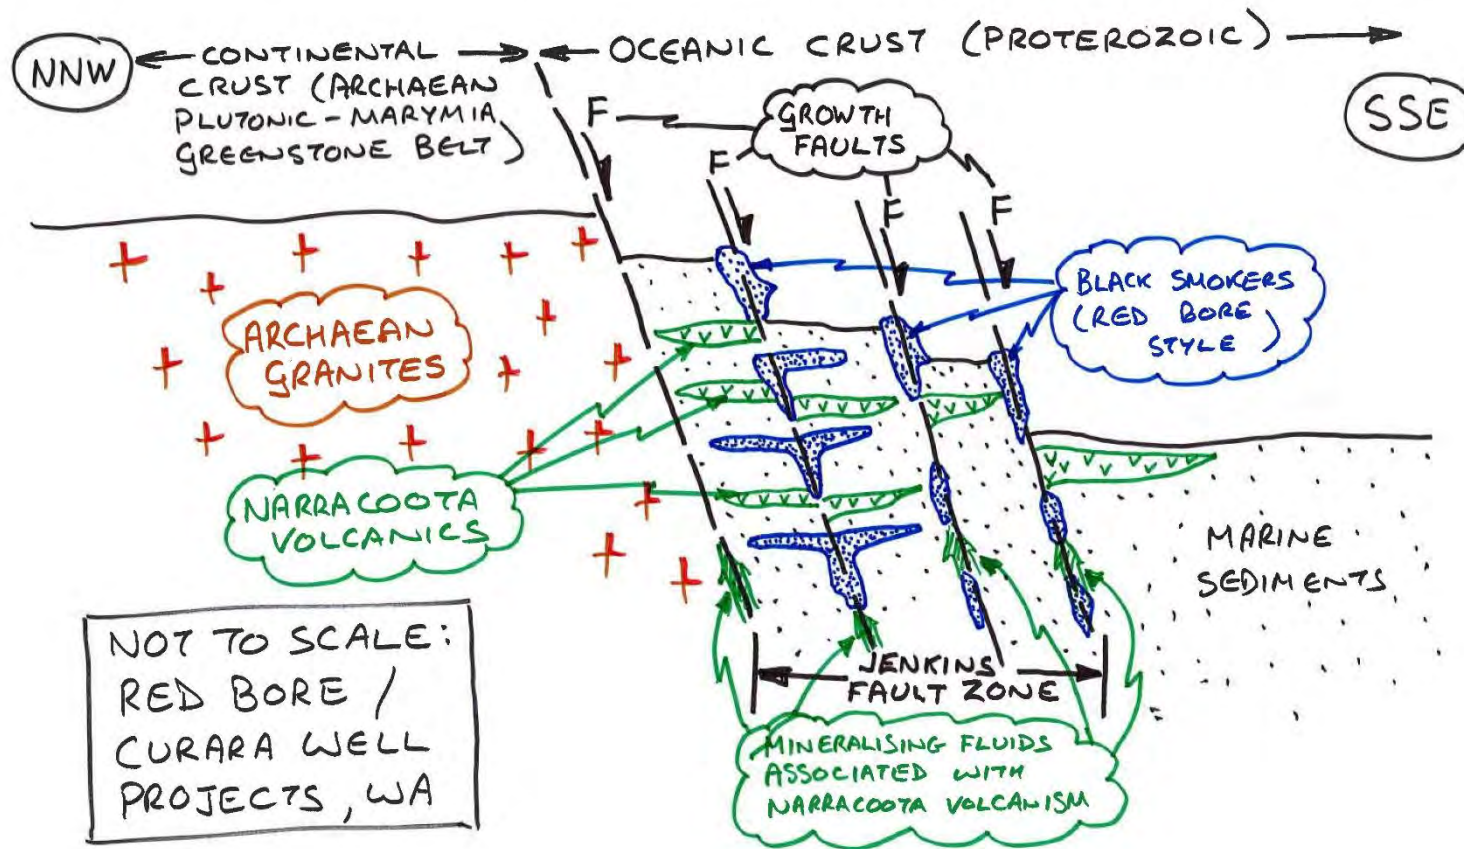 NNW
CONTINENTAL
CRUST (ARCHAEAN
PLUTONIC - MARYMIA
GREENSTONE BELT)
OCEANIC CRUST (PROTEROZOIC)
SSE
F
GROWTH
FAULTS
F
F
F
BLACK SMOKERS
(RED BORE
STYLE)
ARCHAEAN
GRANITES
NARRACOOTA
VOLCANICS
MARINE
SEDIMENTS
NOT TO SCALE:
RED BORE /
CURARA WELL
PROJECTS, WA
JENKINS
FAULT ZONE
MINERALISING FLUIDS
ASSOCIATED WITH
NARRACOOTA VOLCANISM